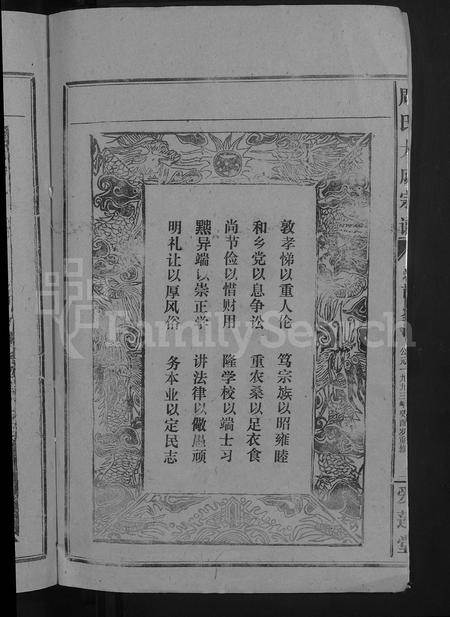 周氏大成宗谱
爱莲堂
敦孝悌以重人伦 笃宗族以昭雍睦
和乡党以息争讼 重农桑以足衣食
尚节俭以惜财用 隆学校以端士习
黜异端以崇正学 讲法律以儆愚顽
明礼让以厚风俗 务本业以定民志
FamilySearch